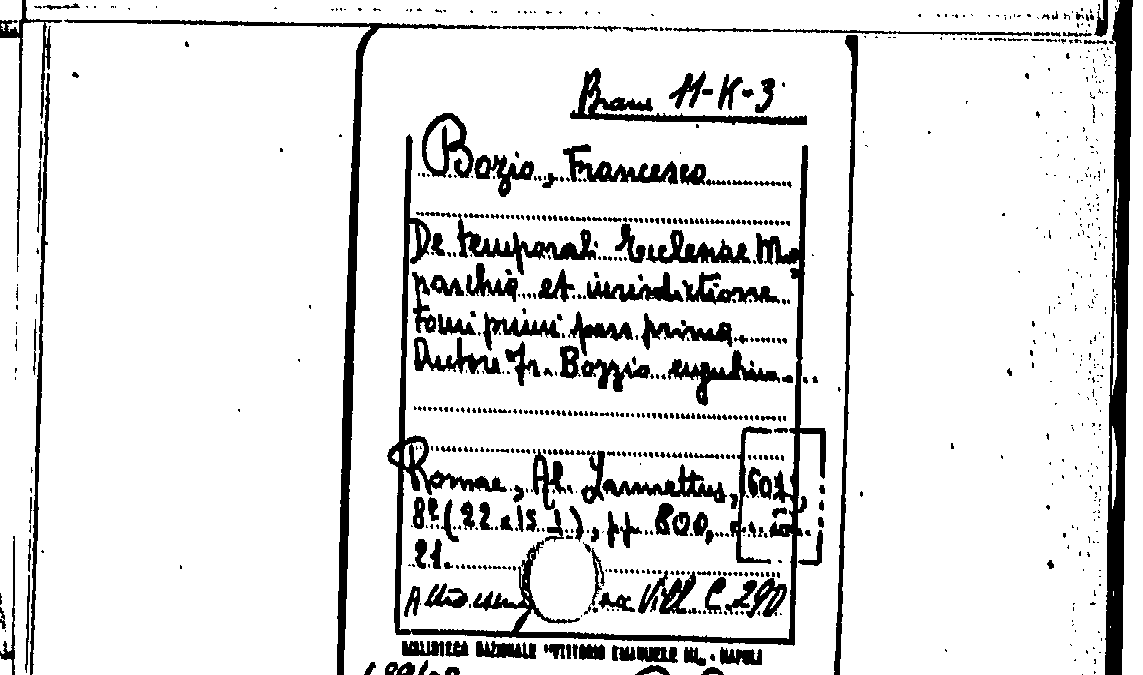 Branc 11-K-3
Bozio, Francesco
De temporali Ecclesiae Mo,
narchia et iurisdictione
tomi primi pars prima.
Auctore Fr. Bozzio eugubino
Romae, Al. Zannettus, 1601,
8º (22 x 15 ), pp 800,
21.
Altro VIII C. 290
BIBLIOTECA NAZIONALE "VITTORIO EMANUELE III" - NAPOLI